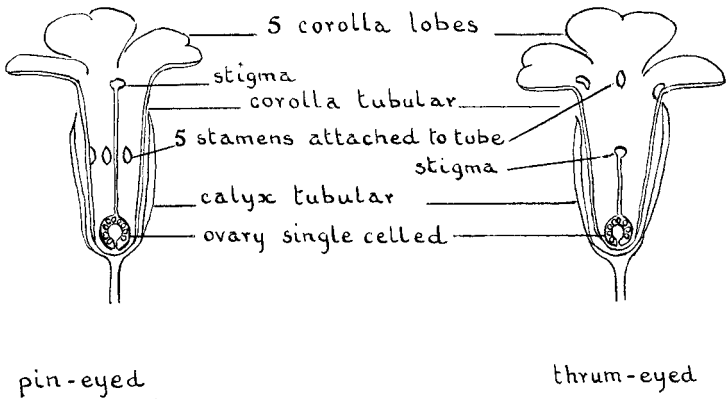 5 corolla lobes
stigma
corolla tubular
5 stamens attached to tube
stigma
calyx tubular
ovary single celled
pin-eyed
thrum-eyed